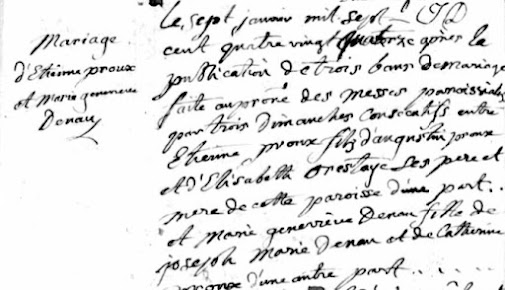 Mariage
d'Etienne proux
et Marie genevieve
Denau
Le sept janvier mil sept
cent quatre vingt quatorze après la
publication de trois bans de mariage
faite au prône des messes paroissiales
par trois dimanches consecutifs entre
Etienne proux fils d'augustin proux
et d'Elisabeth les pere et
mere de cette paroisse d'une part . .
et Marie geneviève Denau fille de
joseph Marie Denau et de Catherine
d'une autre part . . . . .